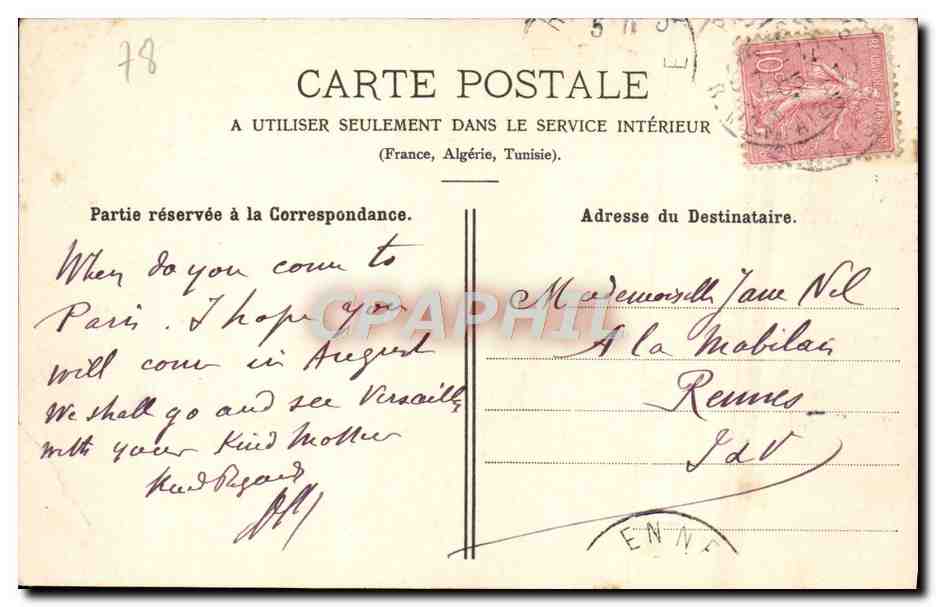 78
CARTE POSTALE
A UTILISER SEULEMENT DANS LE SERVICE INTÉRIEUR
(France, Algérie, Tunisie).
Partie réservée à la Correspondance.
When do you come to
Paris. I hope you
will come in August
We shall go and see Versailles
with your Kind Mother
Kind Regards
Adresse du Destinataire.
Mademoiselle Jane Nel
A la Mabilais
Rennes
I d V
ENNE
10
CPAPHIL